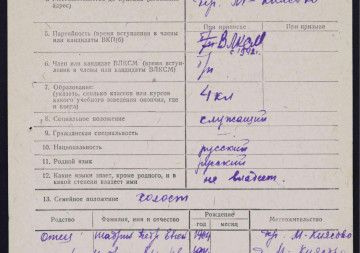 адрес)
др. М-Киясово
При приписке
При призыве
5. Партийность (время вступления в члены
или кандидаты ВКП(б)
ВЛКСМ
с 1942г.
6. Член или кандидат ВЛКСМ (время вступ-
ления в члены или кандидаты ВЛКСМ)
б/п
7. Образование:
(указать, сколько классов или курсов
какого учебного заведения окончил, где
и когда)
4 кл
8. Социальное положение
служащий
9. Гражданская специальность
10. Национальность
русский
11. Родной язык
русский
12. Какие языки знает, кроме родного, и в
какой степени владеет ими
не владеет.
13. Семейное положение холост
Родство
Фамилия, имя и отчество
Рождение
год
месяц
Местожительство
Отец
Петр
др. М-Киясово
д. М-Киясово